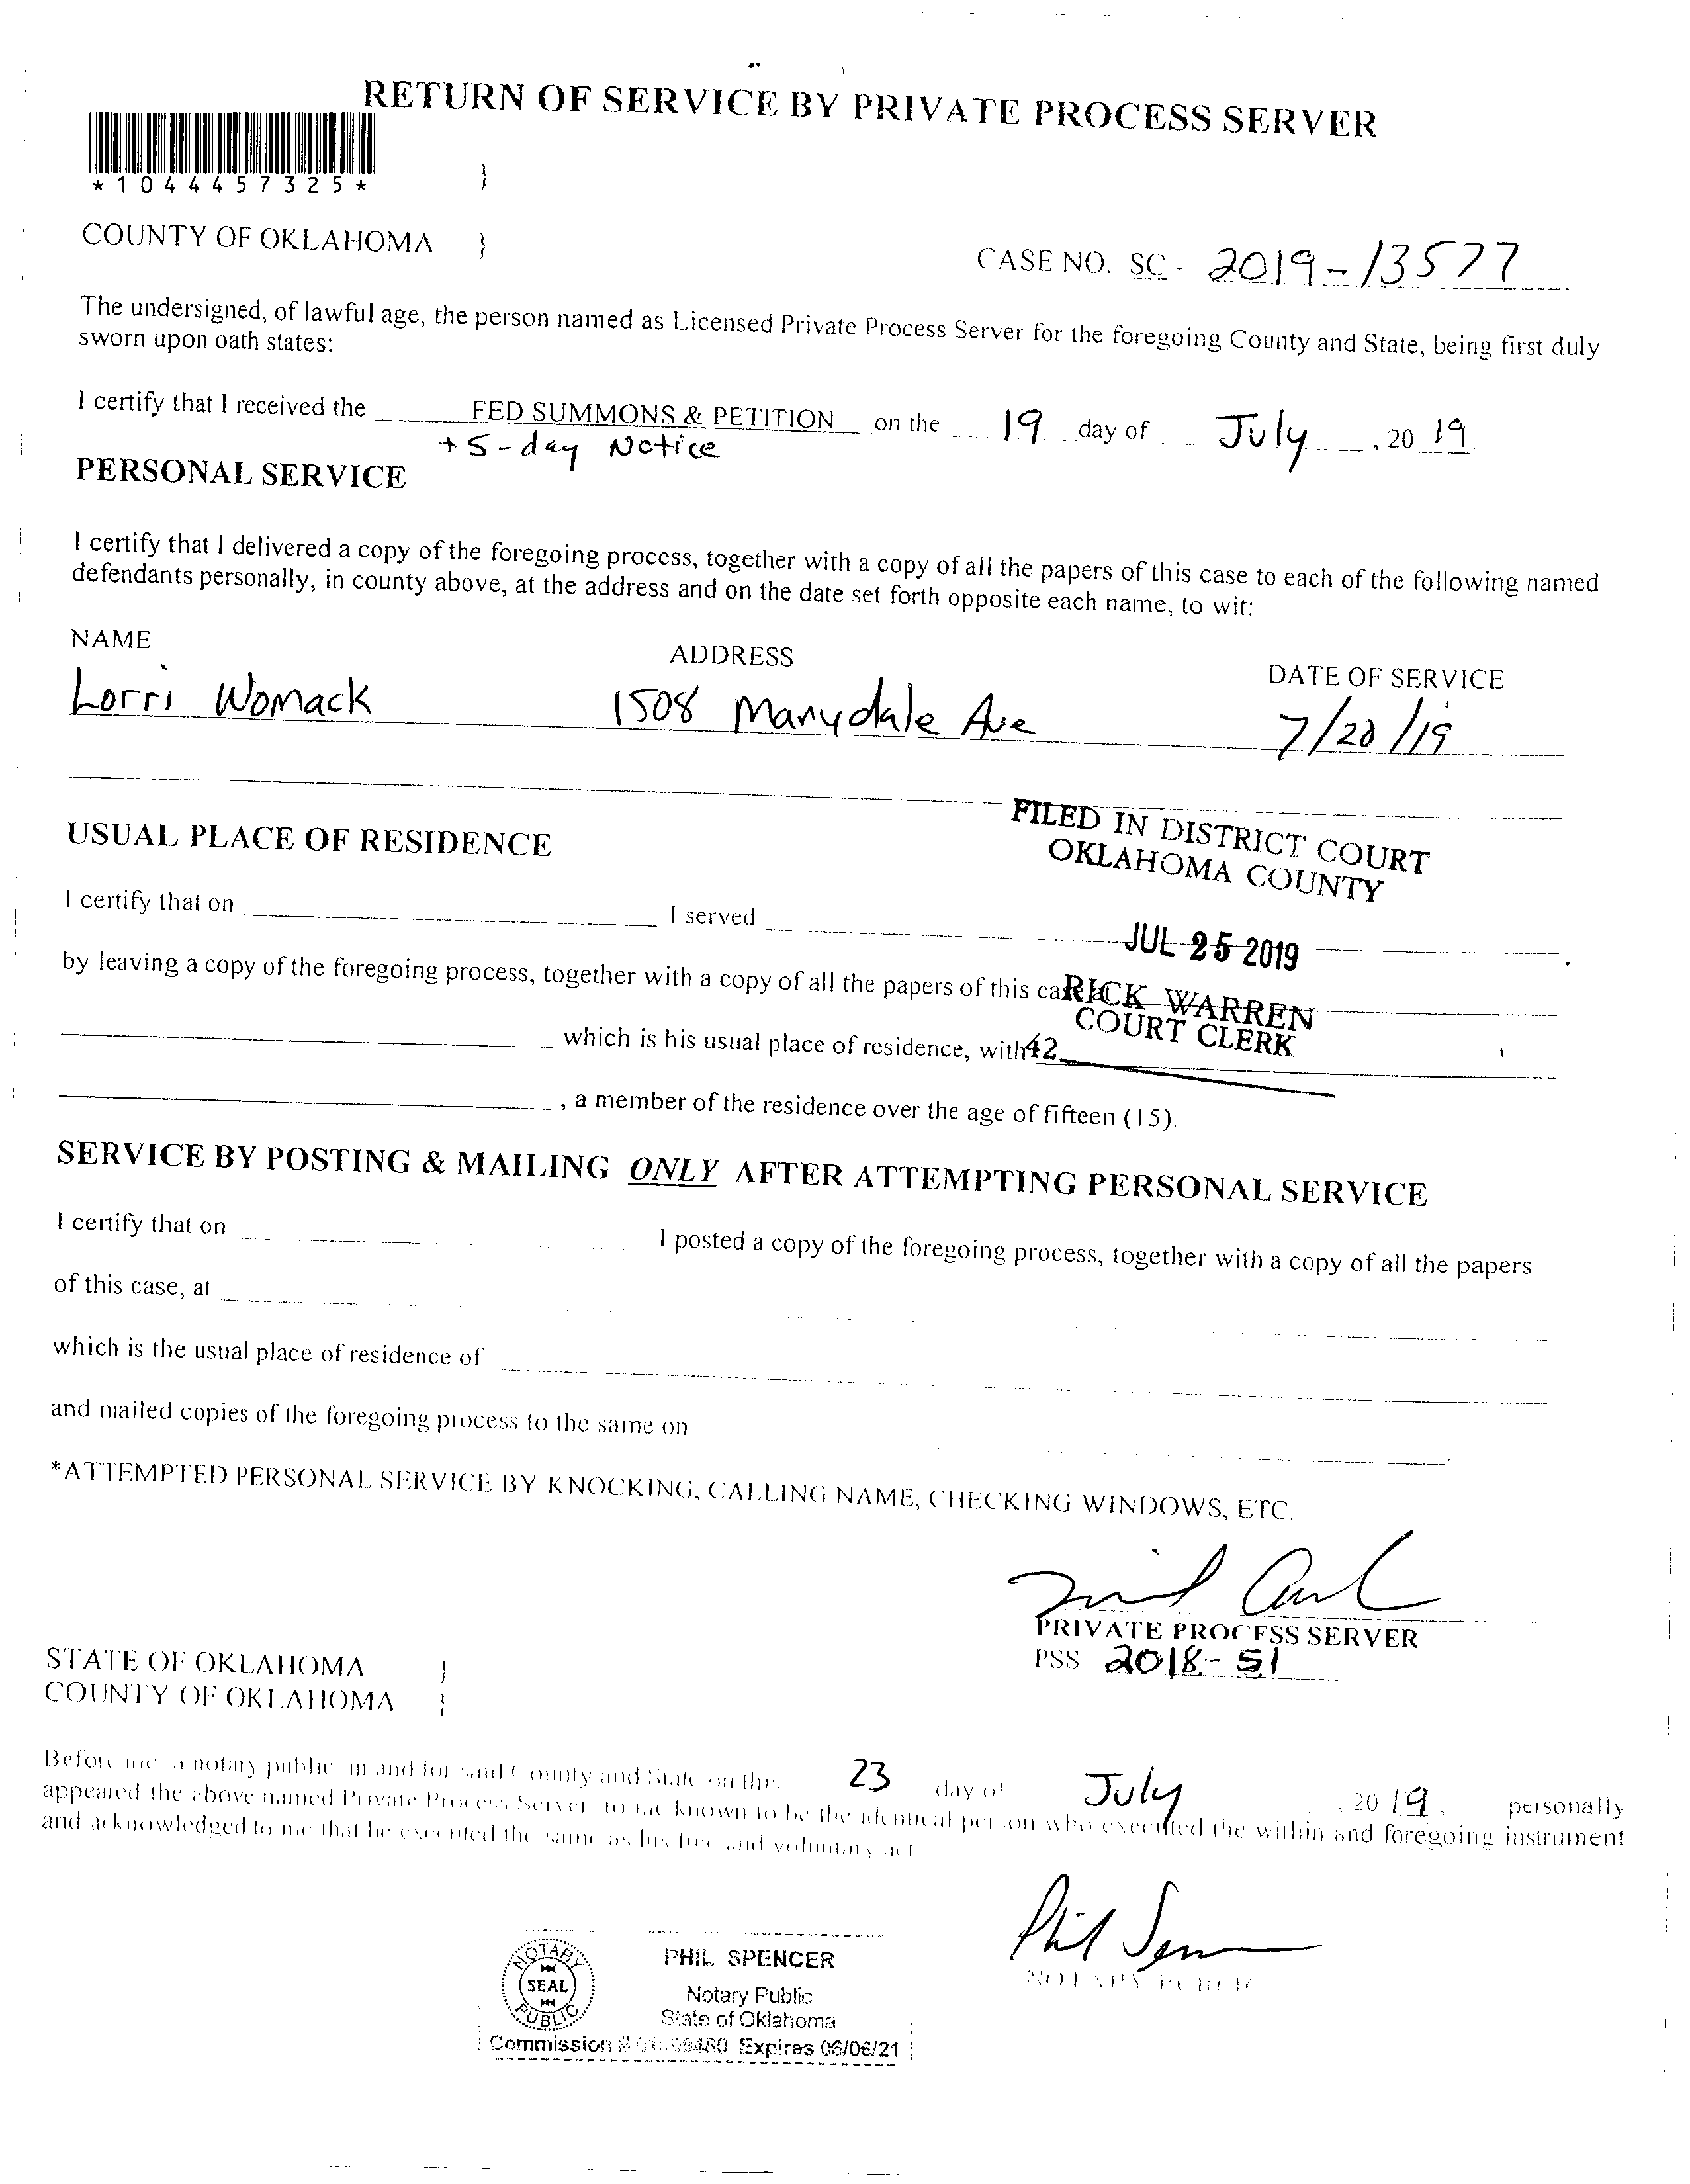 RETURN OF SERVICE BY PRIVATE PROCESS SERVER
*1044457325* }
COUNTY OF OKLAHOMA }
CASE NO. SC- 2019-13577
The undersigned, of lawful age, the person named as Licensed Private Process Server for the foregoing County and State, being first duly
sworn upon oath states:
I certify that I received the FED SUMMONS & PETITION on the 19 day of July, 20 19
+ 5-day Notice
PERSONAL SERVICE
I certify that I delivered a copy of the foregoing process, together with a copy of all the papers of this case to each of the following named
defendants personally, in county above, at the address and on the date set forth opposite each name, to wit:
NAME ADDRESS DATE OF SERVICE
Lorri Womack 1508 Marydale Ave 7/20/19
FILED IN DISTRICT COURT
OKLAHOMA COUNTY
USUAL PLACE OF RESIDENCE
I certify that on I served
JUL 25 2019
by leaving a copy of the foregoing process, together with a copy of all the papers of this
RICK WARREN
COURT CLERK
which is his usual place of residence, with
42
, a member of the residence over the age of fifteen (15).
SERVICE BY POSTING & MAILING ONLY AFTER ATTEMPTING PERSONAL SERVICE
I certify that on I posted a copy of the foregoing process, together with a copy of all the papers
of this case, at
which is the usual place of residence of
and mailed copies of the foregoing process to the same on
*ATTEMPTED PERSONAL SERVICE BY KNOCKING, CALLING NAME, CHECKING WINDOWS, ETC.
PRIVATE PROCESS SERVER
PSS 2018-51
STATE OF OKLAHOMA }
COUNTY OF OKLAHOMA }
Before me a notary public in and for said County and State on this 23 day of July, 20 19, personally
appeared the above named Private Process Server to me known to be the identical person who executed the within and foregoing instrument
and acknowledged to me that he executed the same as his free and voluntary act
NOTARY PUBLIC
NOTARY
SEAL
PUBLIC
PHIL SPENCER
Notary Public
State of Oklahoma
Commission # Expires 06/06/21